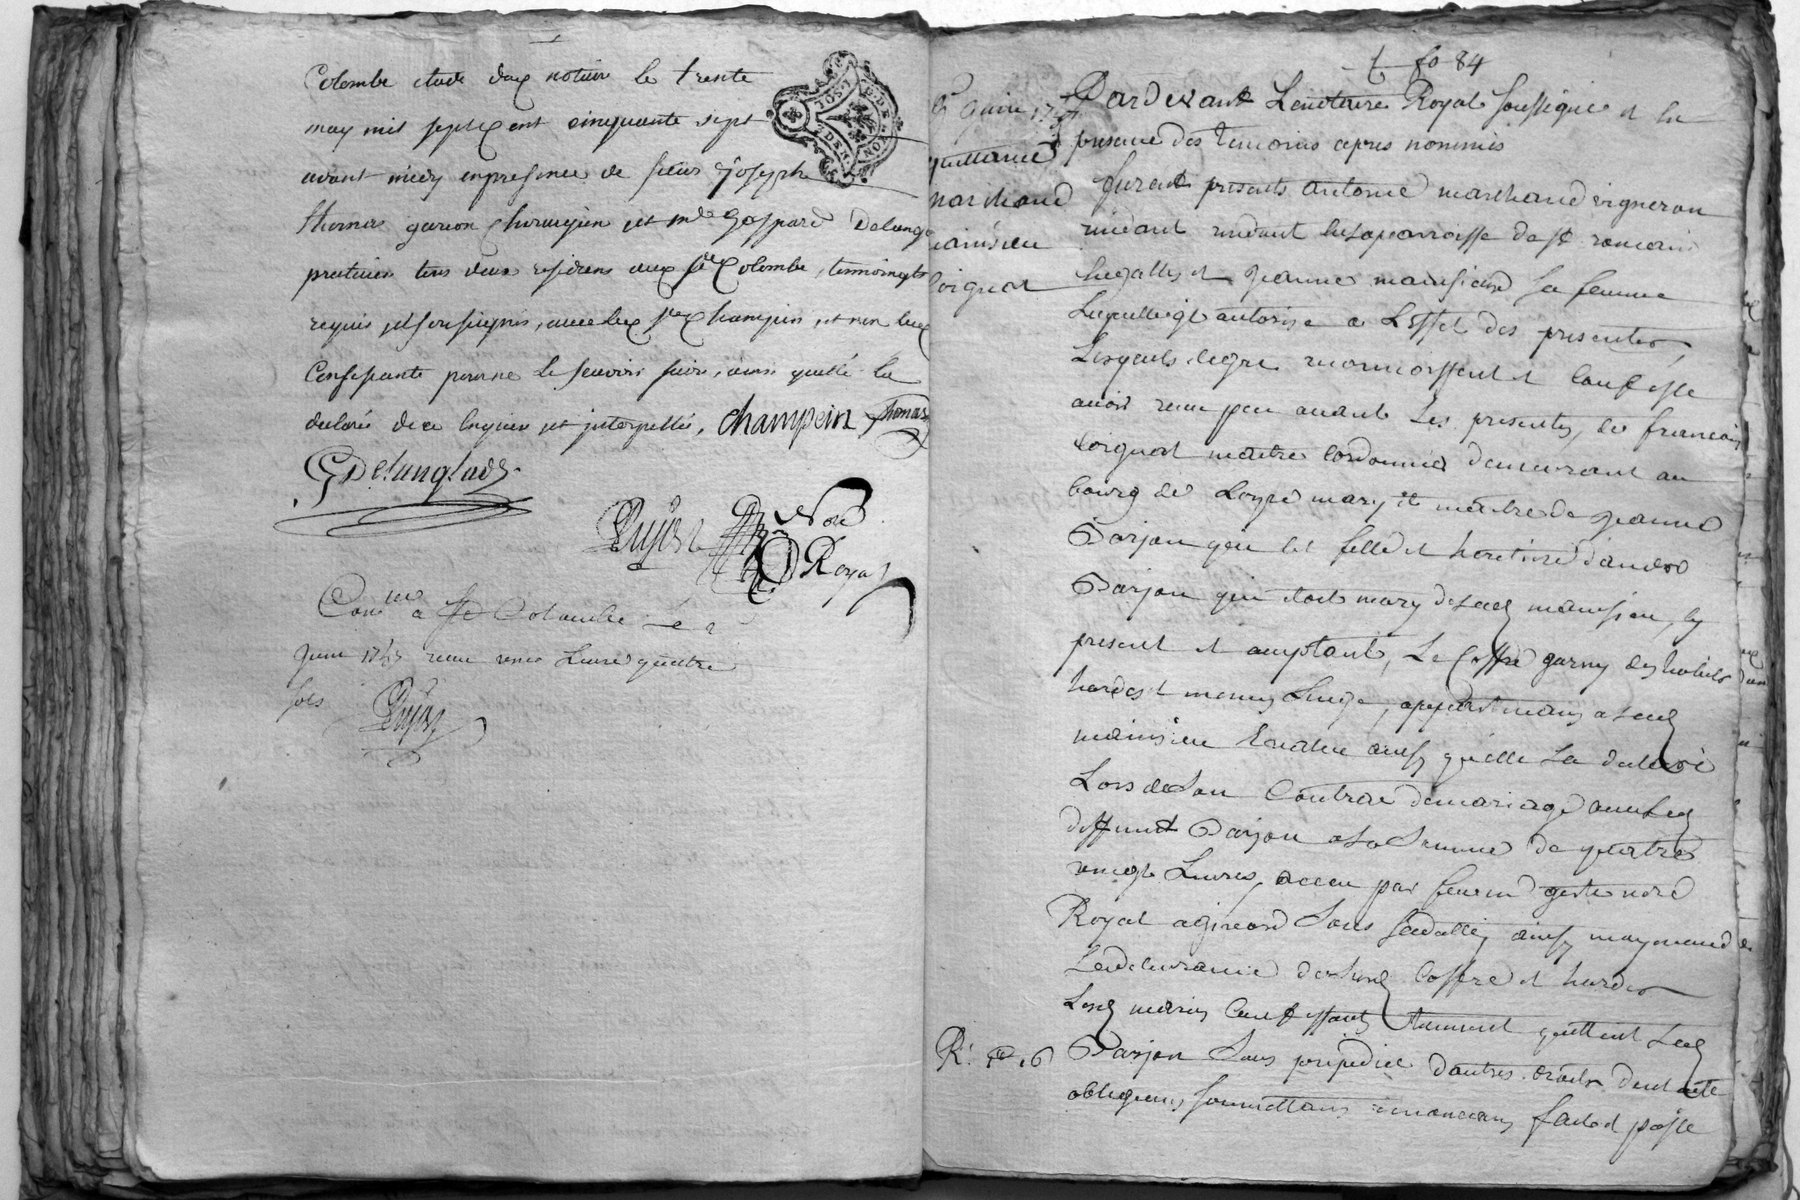 Colombe etude dud notaire le trente
may mil sept cent cinquante sept
avant midy en presence de sieur Joseph
thomas garcon chirurgien et me Gaspard Delangl
praticien tous deux residens aud ste Colombe, temoingts
requis et sousignés, avec led sr Champein, et non lad
Confessante pour ne le scavoir faire, ainsi quelle la
declaré de ce enquise et interpellée, champein thomas
GDelanglade
Pujos Nore
Royal
Conlle a ste Colombe le 2
Juin 1757 recu une Livre quatre
sols
Pujos
fo 84
2 Juin 1757
quittance
marchand
mainsieu
Coignat
Pardevant Le notaire Royal soussigné et la
presence des temoins apres nommés
furent presents antoine marchand vigneron
residant en la parroisse de st romain
Legalles et Jeanne mainsieu sa femme
Lesquels degre reconnoissent et confesse
avoir recu peu avant Les presentes, de francois
Coignat maitre Cordonnier demeurant au
bourg de Loyre mary et maitre de Jeanne
Parjon fille et heretiere d'andré
Parjon qui etoit mary de lad mainsieu, icy
present et acceptant, Le Coffre garny des habits
hardes et menus Linge, appartenans a lad
mainsieu ainsy quelle la declaré
Lors de son Contrat de mariage avec led
deffunct Parjon a la somme de quatre
vingt Livres, receu par nore
Royal
La delivrance desd Coffre et hardes
Lesd mariés Confessants tiennent quittent led
R. 6
Parjon sans prejudice d'autres droits dont acte
obligeans soumettans renoncans fait et passé